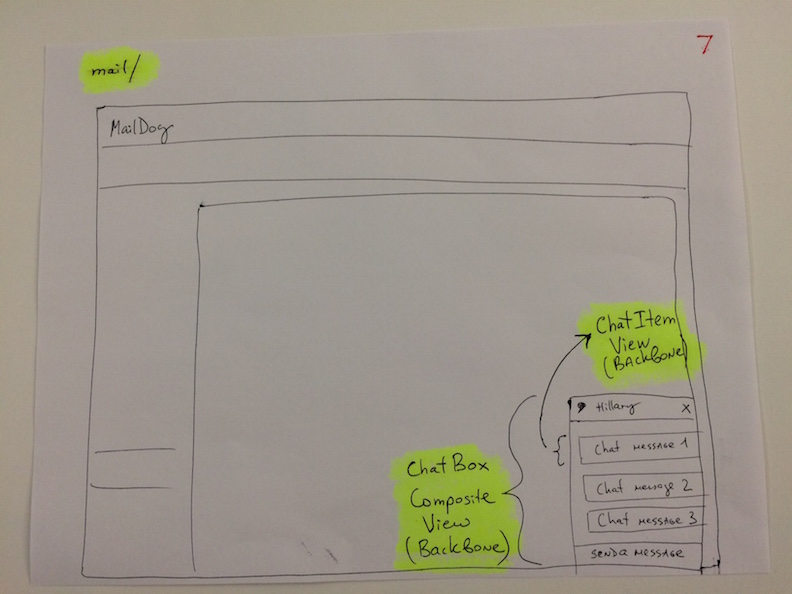 7
mail/
MailDog
ChatItem
View
(Backbone)
Hillary X
Chat message 1
Chat message 2
Chat message 3
Send a message
ChatBox
Composite
View
(Backbone)